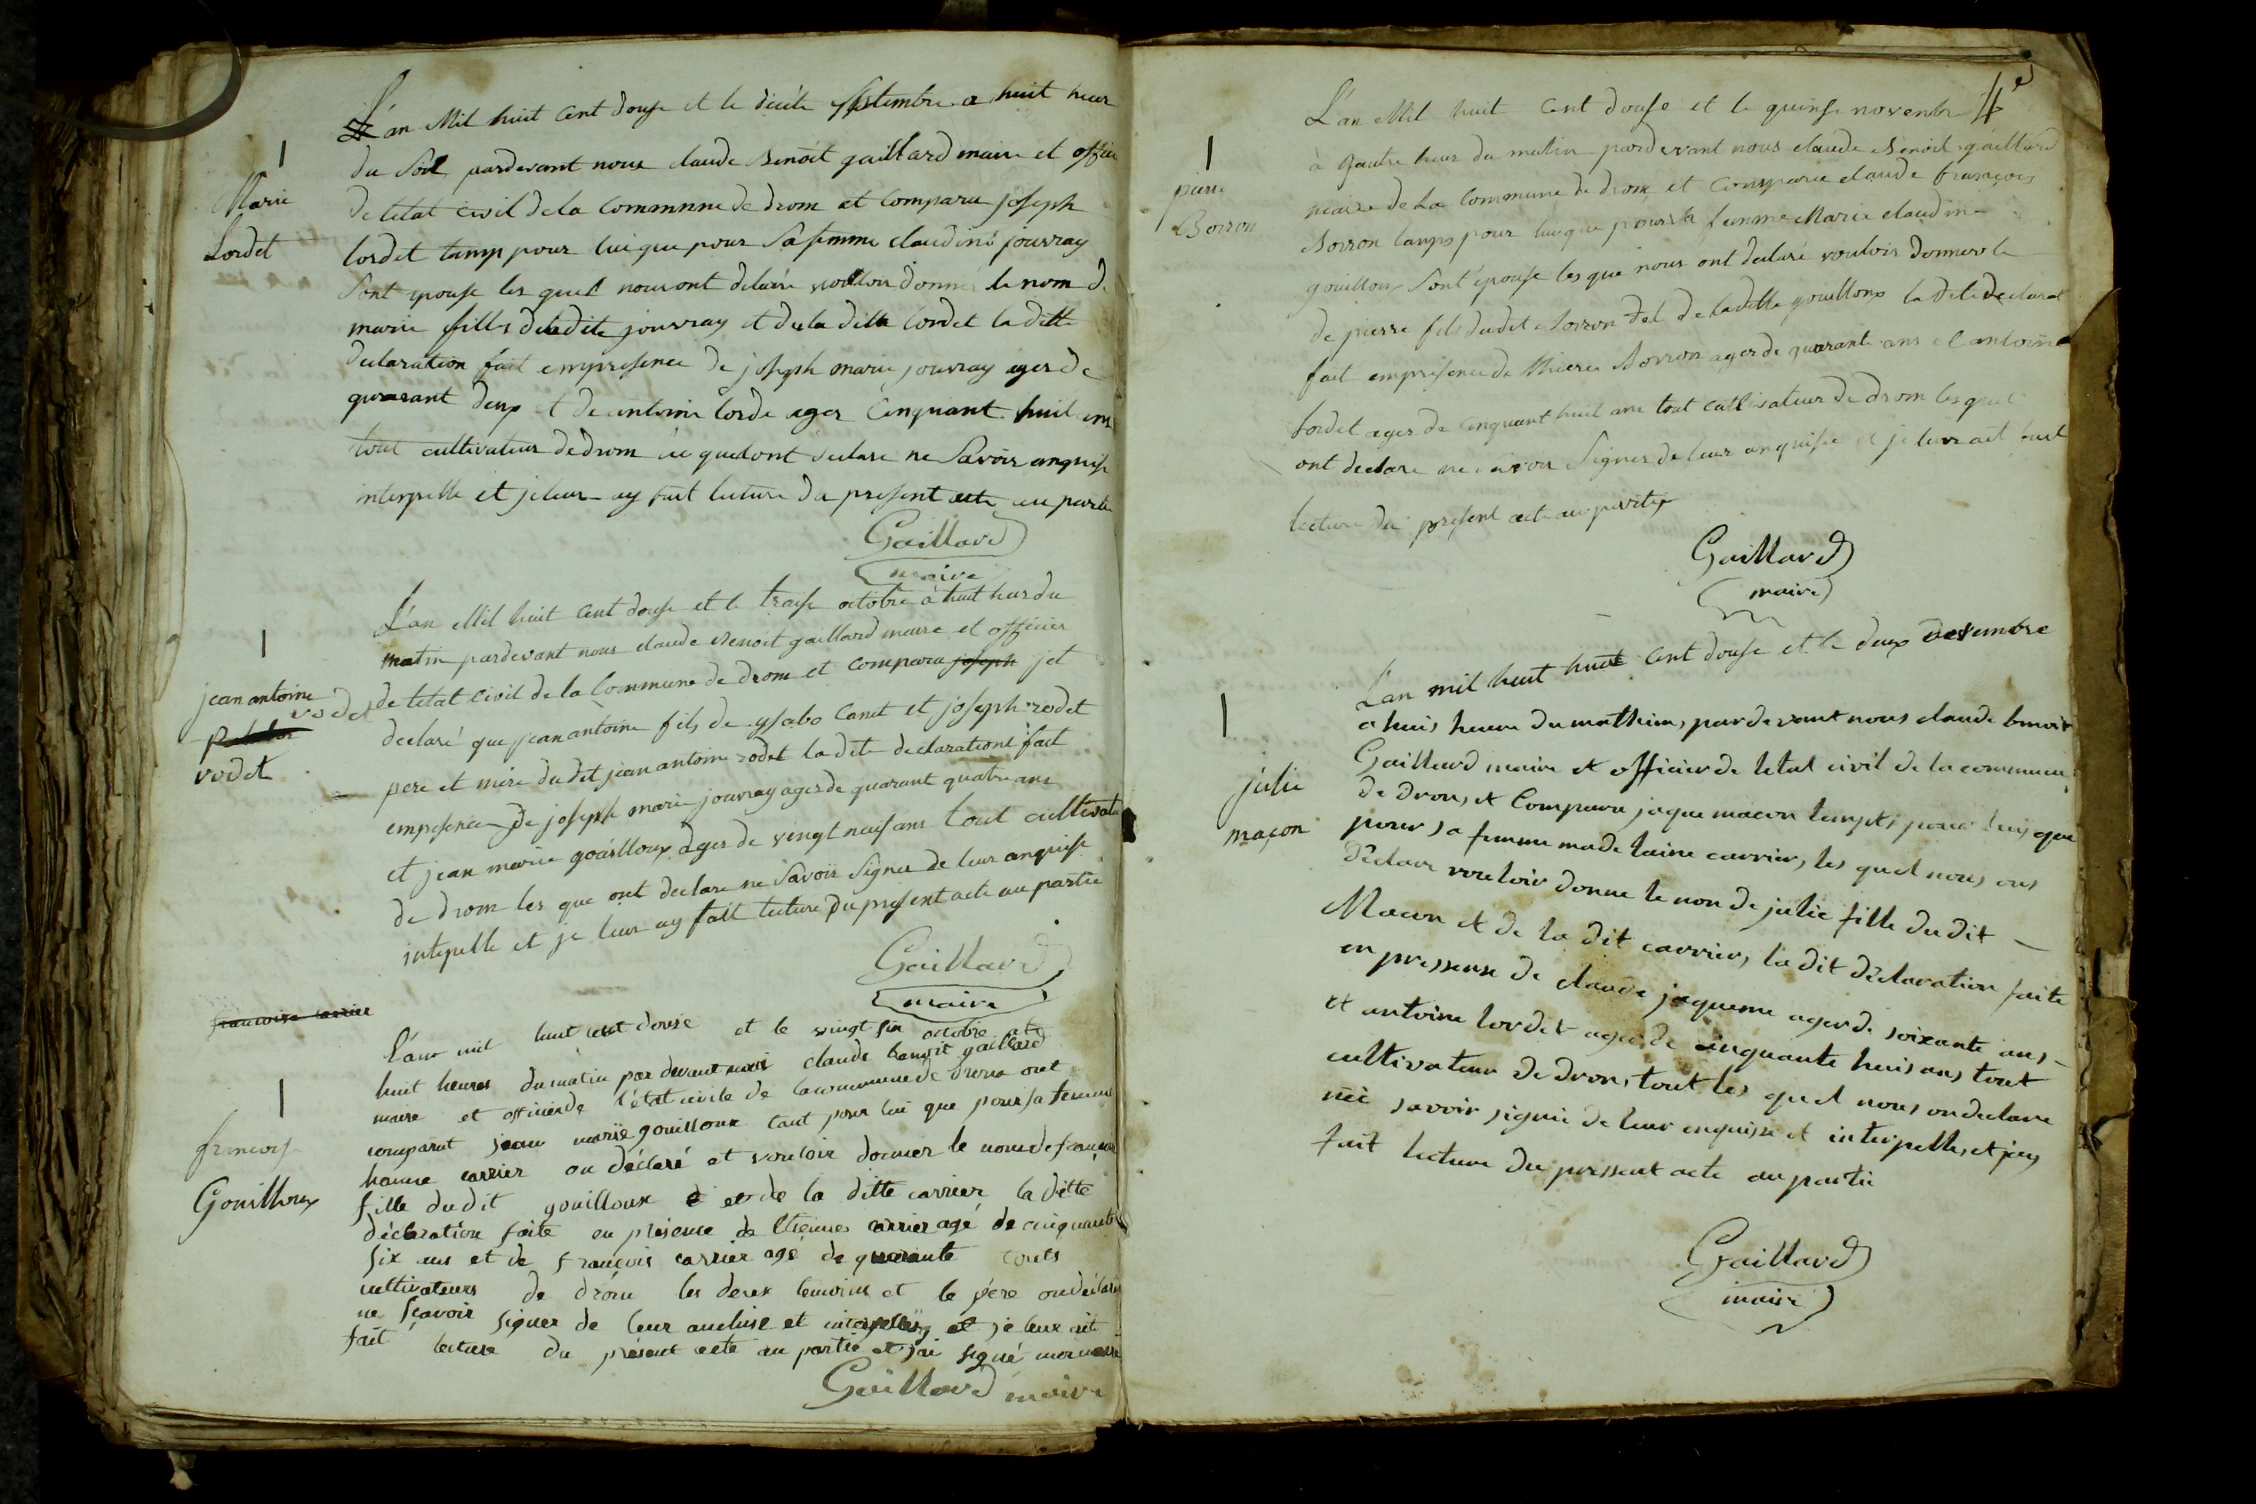 L'an Mil huit Cent douse et le septembre a huit heur
du Soil pardevant nous claude Benoit gaillard maire et officie
De letat civil dela Commnune de drom et Comparu joseph
lordet tamp pour lui que pour Sa femme claudine jouvray
Sont epouse les quel nous ont delairé vouloir donner le nom de
marie fille deladite jouvray et dela dille lordet la ditte
declaration fait empresence de joseph marie jouvray ager de
quarant deux et de antoine lorde ager Cinquant huit ans
tout cultivateur de drom ont declare ne Savoir anquise
interpelle et je leur ay fait lecture du present acte au partie
Gaillard
maire
Marie
Lordet
L'an Mil huit Cent douse et le traise octobre a huit heur du
matin pardevant nous claude Benoit gaillard maire et officier
de letat civil de la Commune de drom et Compara joseph jet
declaré que jean antoine fils de ysabo Canet et joseph rodet
pere et mere dudit jean antoine rodet la dite declarationt fait
empresence De joseph marie jouvray ager de quarant quatre ans
et jean marie goüilloux ager de vingt neuf ans tout cultivate
de drom les que ont declare ne Savoir Signer de leur anquise
intepelle et je leur ay fait lecture Du present acte au partie
Gaillard
maire
jean antoine
rodet
vodet
francoise carrier
L'an mil huit cent douse et le vingt six octobre
huit heures du matin par devant nous claude benoit gaillard
maire et officier de l'état civile de la commune de drom ont
comparut jean marie gouilloux tant pour lui que pour sa femme
carrier on déclaré et vouloir donner le nom de françoise
fille dudit gouilloux et de la ditte carrier la ditte
déclaration faite en présence de Etienne carrier agé de cinquante
six ans et de François carrier agé de quarante touts
cultivateurs de dróm les deux temoins et le pére on déclaré
ne sçavoir signer de leur anchise et interpelles et je leur ait
fait lecture du présent acte au partie et j'ai signé
Gaillard maire
françoise
Gouilloux
4e
L'an Mil huit Cent douse et le quinse novenbr
à quatre heur du matin pardevant nous claude Benoit gaillard
maire de La Commune de drom et Comparu claude françois
Borron tamps pour luique pour sa femme Marie claudine
gouilloux Sont épouse les que nous ont declaré vouloir Donner le
de pierre fils dudit Borron et de ladille gouilloux la dite declarat
fait empresence de Borron ager de quarante ans et antoine
lordet ager de Cinquant huit ans tout cultivateur de drom les quel
ont declare ne Savoir Signer de leur anquise et je leur ait fait
lecture du present acte au partie
Gaillard
maire
pierre
Borron
L'an mil huit huit Cent douse et le deux desembre
a huis heure du mathim, pardevant nous claude benoit
Gaillard maire et officier de letat civil de la commune
de drom, et Comparu jaque macon temps pour luis que
pour sa femme madelaine carrier, les quel nous ons
déclare vouloir donne le non de julie fille du dit
Macon et de la dit carrier, la dit déclaration faite
en pressense de claude jaqueme ager de soixante ans
et antoine lordet ager de cinquante huis ans tout
cultivateur de drom, tout les quel nous on declare
nèi savoir signie de leur enquisse et interpelle, et jeuy
fait lecture du pressent acte au partie
Gaillard
maire
julie
maçon